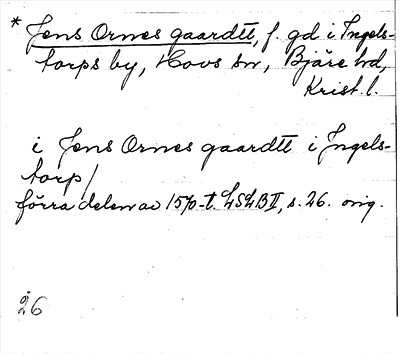 * Jens Ornes gaardtt, f. gd i Ingels-
torps by, Hovs sn, Bjäre hd,
Krist. l.
i Jens Ornes gaardtt i Ingels-
torp/
förra delen av 1570-t. LSLB II, s. 26. orig.
26